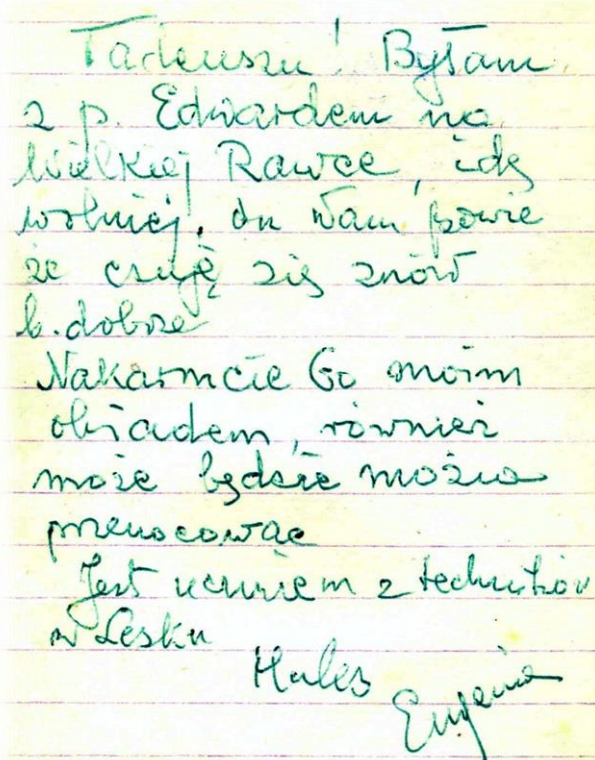 Tadeuszu! Byłam
z p. Edwardem na
Wielkiej Rawce, idę
wolniej, on Wam powie
że czuję się znów
b. dobrze
Nakarmcie Go moim
obiadem, również
może będzie można
przenocować
Jest uczniem z techników
w Lesku
Eugenia